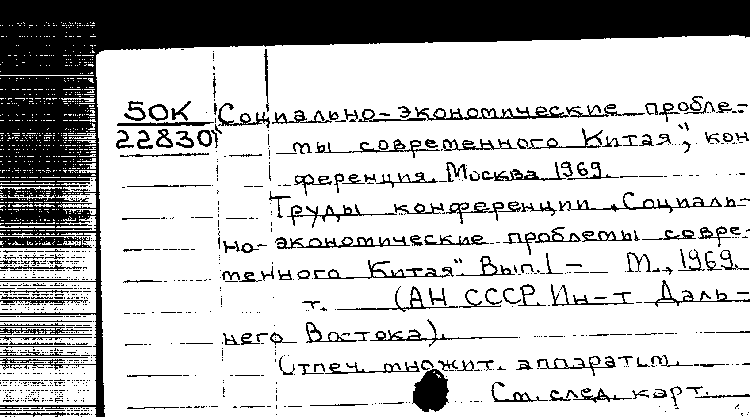 50К Социально-экономические пробле-
22830 мы современного Китая", кон
ференция. Москва 1969.
Труды конференции „Социаль-
но-экономические проблемы совре-
менного Китая". Вып.1 – М., 1969.
т. (АН СССР. Ин-т Даль-
него Востока).
Отпеч. множит. аппаратом.
См. след. карт.